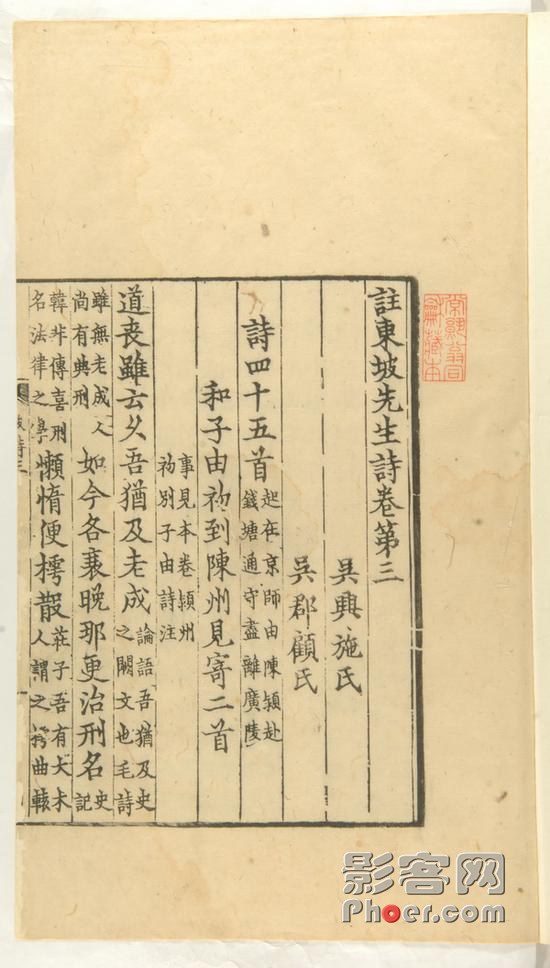 常熟翁同
龢藏本
註東坡先生詩卷第三
吳興施氏
吳郡顧氏
詩四十五首起在京師由陳潁赴
錢塘通守盡離廣陵
和子由初到陳州見寄二首
事見本卷潁州
初別子由詩注
道喪雖云久吾猶及老成論語吾猶及史
之闕文也毛詩
雖無老成人
尚有典刑
如今各衰晚那更治刑名史
記
韓非傳喜刑
名法律之學
懶惰便樗散莊子吾有大木
人謂之樗曲轅
坡詩三
影客网
Phoer.com